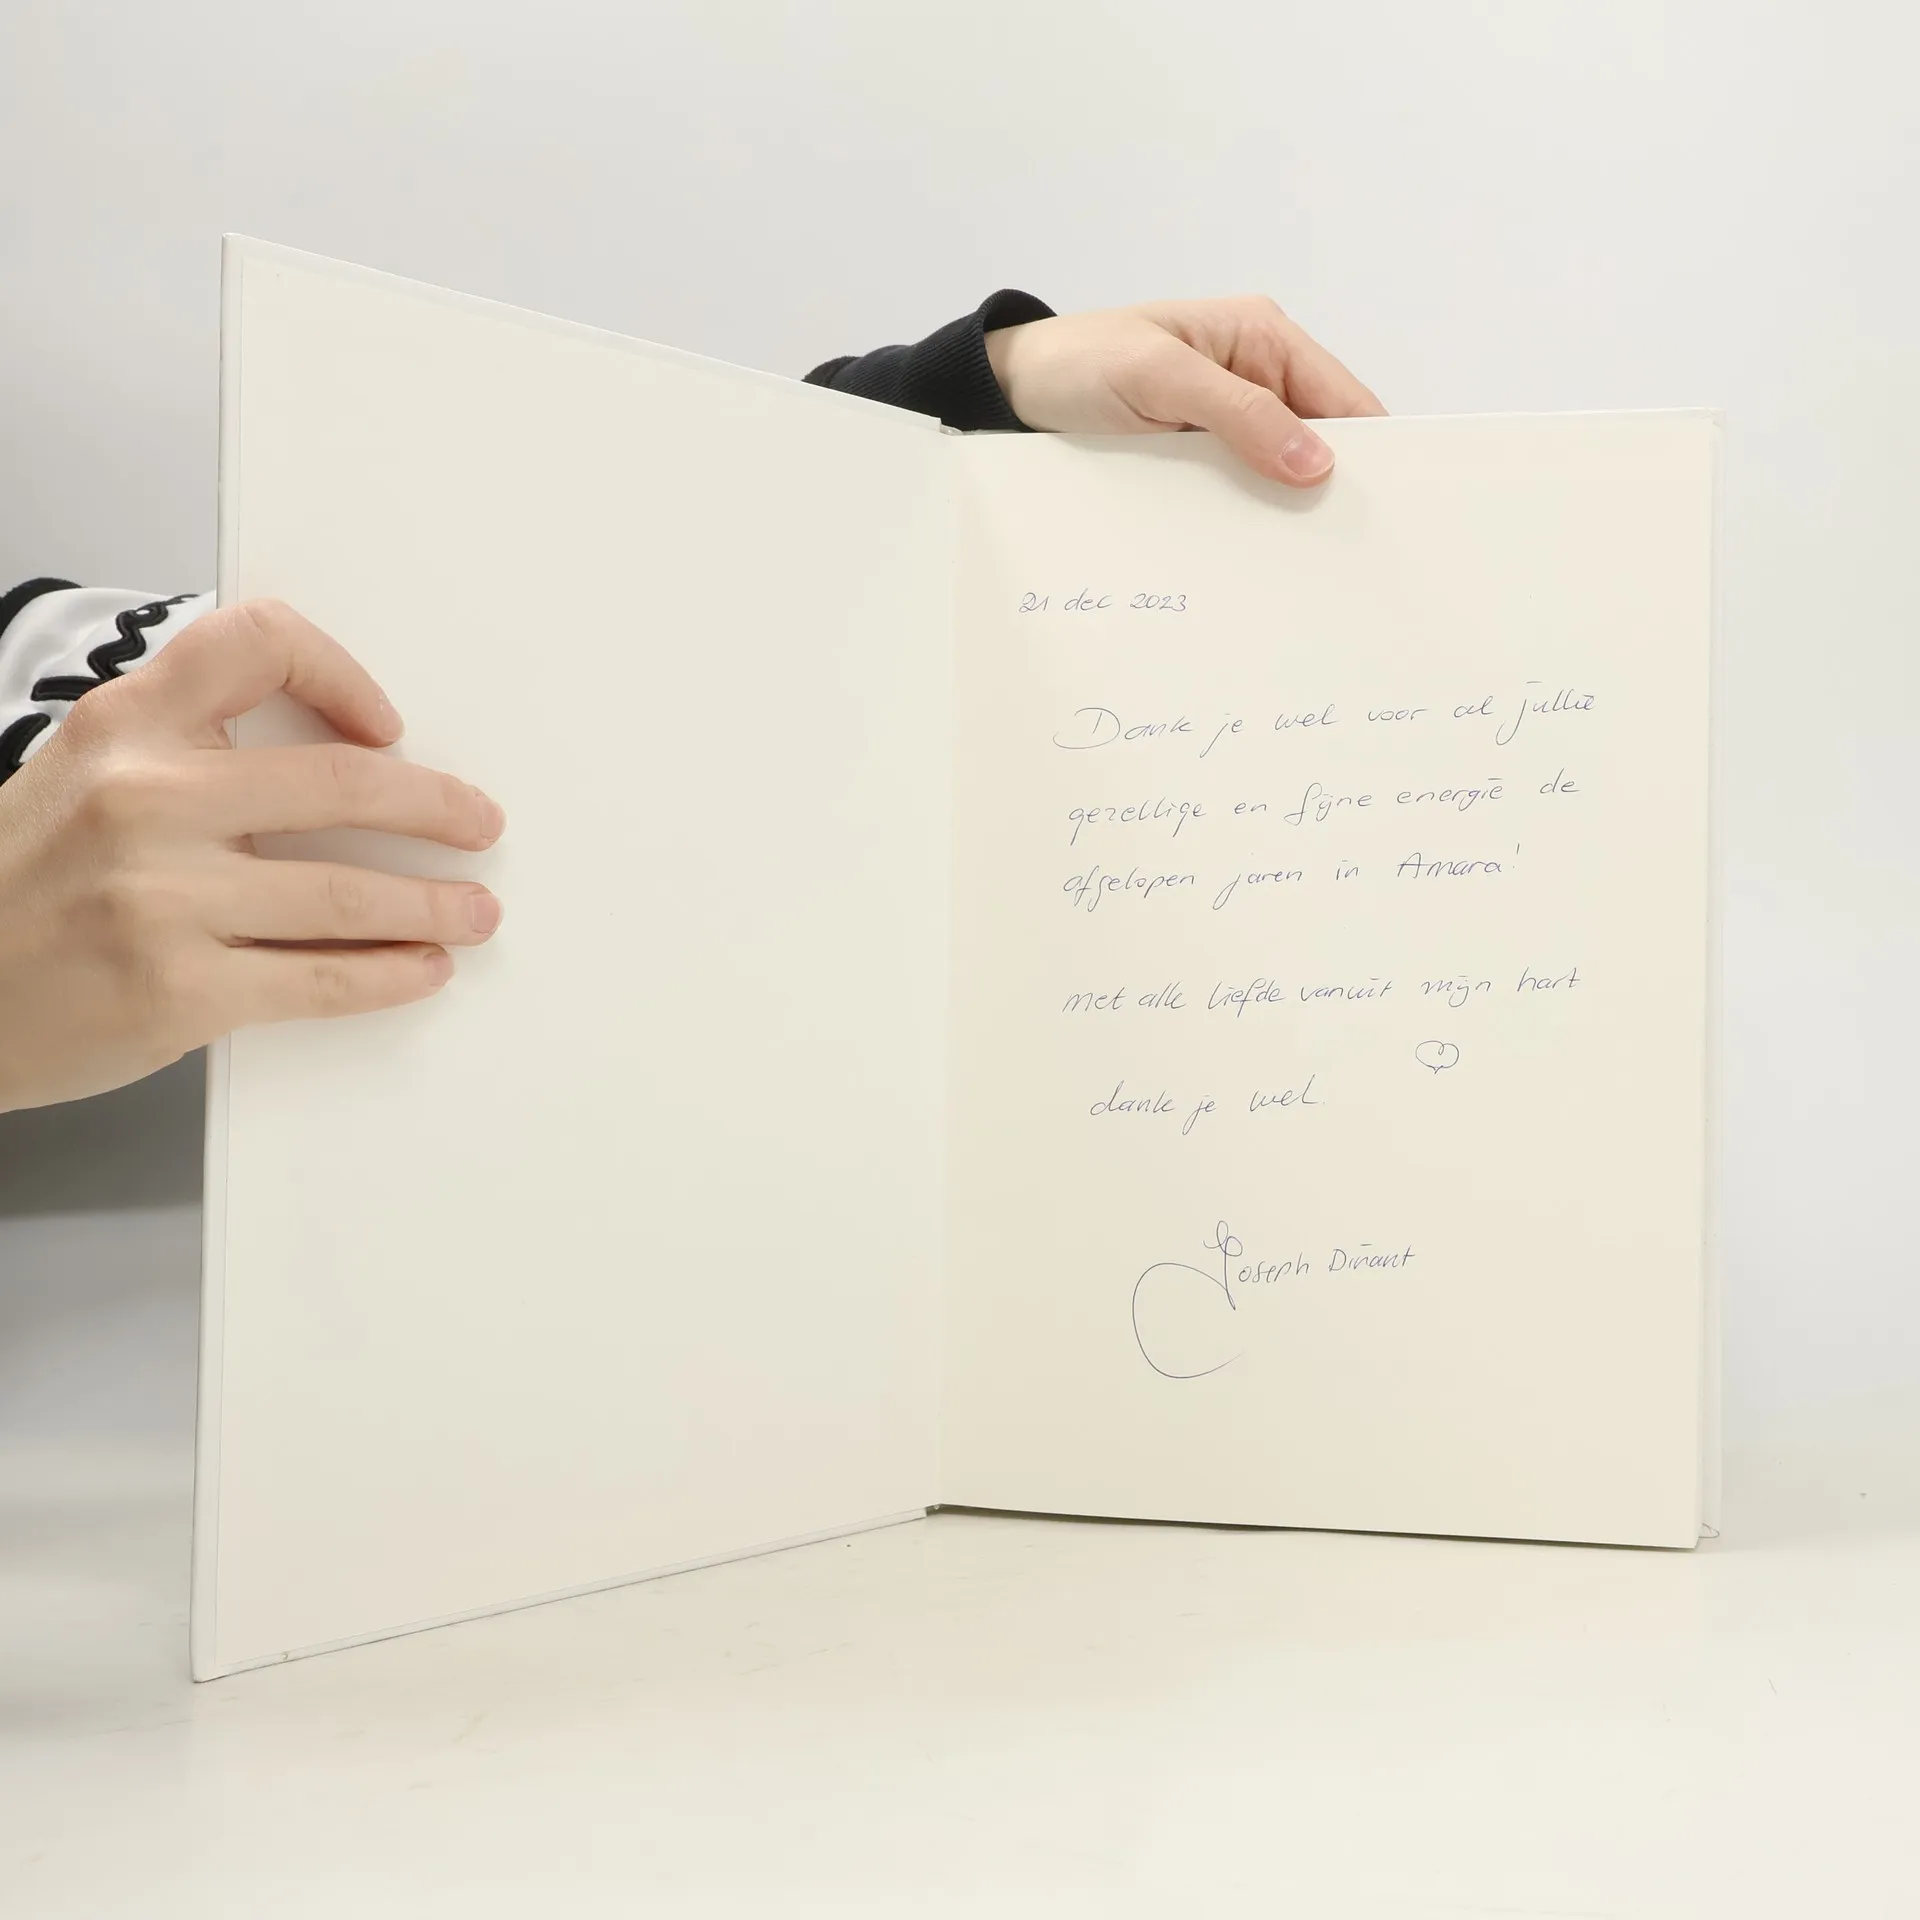 21 dec 2023
Dank je wel voor al jullie
gezellige en fijne energie de
afgelopen jaren in Amara!
met alle liefde vanuit mijn hart
dank je wel.
Joseph Dinant